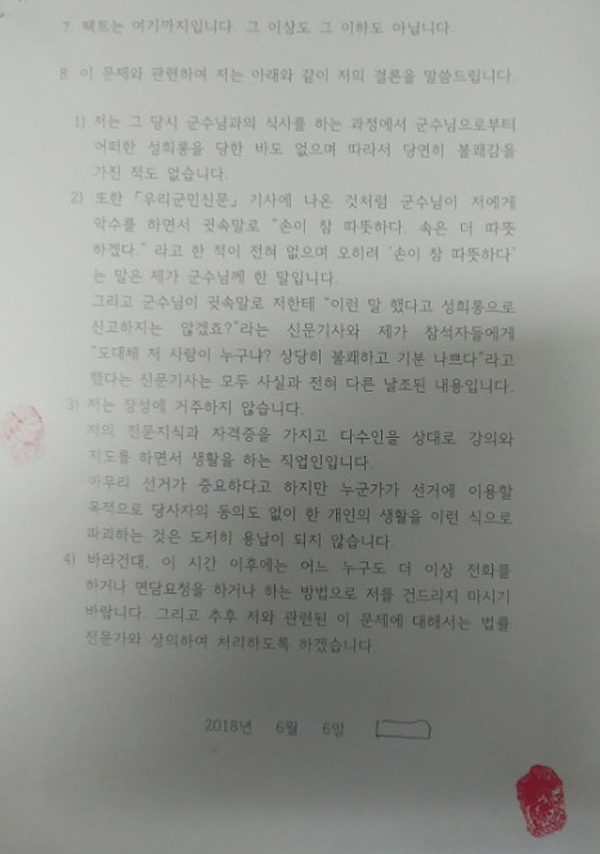 7. 팩트는 여기까지입니다. 그 이상도 그 이하도 아닙니다.
8. 이 문제와 관련하여 저는 아래와 같이 저의 결론을 말씀드립니다.
1) 저는 그 당시 군수님과의 식사를 하는 과정에서 군수님으로부터
어떠한 성희롱을 당한 바도 없으며 따라서 당연히 불쾌감을
가진 적도 없습니다.
2) 또한 「우리군민신문」 기사에 나온 것처럼 군수님이 저에게
악수를 하면서 귓속말로 “손이 참 따뜻하다. 속은 더 따뜻
하겠다.” 라고 한 적이 전혀 없으며 오히려 ‘손이 참 따뜻하다’
는 말은 제가 군수님께 한 말입니다.
그리고 군수님이 귓속말로 저한테 “이런 말 했다고 성희롱으로
신고하지는 않겠죠?”라는 신문기사와 제가 참석자들에게
“도대체 저 사람이 누구냐? 상당히 불쾌하고 기분 나쁘다”라고
했다는 신문기사는 모두 사실과 전혀 다른 날조된 내용입니다.
3) 저는 장성에 거주하지 않습니다.
저의 전문지식과 자격증을 가지고 다수인을 상대로 강의와
지도를 하면서 생활을 하는 직업인입니다.
아무리 선거가 중요하다고 하지만 누군가가 선거에 이용할
목적으로 당사자의 동의도 없이 한 개인의 생활을 이런 식으로
파괴하는 것은 도저히 용납이 되지 않습니다.
4) 바라건대, 이 시간 이후에는 어느 누구도 더 이상 전화를
하거나 면담요청을 하거나 하는 방법으로 저를 건드리지 마시기
바랍니다. 그리고 추후 저와 관련된 이 문제에 대해서는 법률
전문가와 상의하여 처리하도록 하겠습니다.
2018년 6월 6일